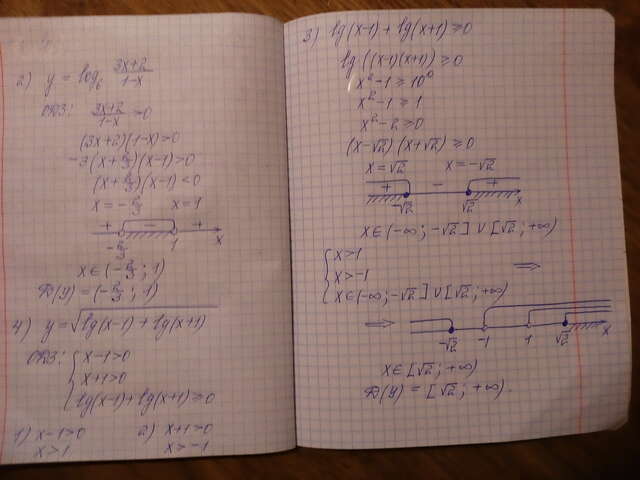 2) y = log₆ (3x+2)/(1-x)
ОДЗ: (3x+2)/(1-x) >0
(3x+2)(1-x)>0
-3(x+2/3)(x-1)>0
(x+2/3)(x-1)<0
x=-2/3 x=1
+ - +
-2/3 1 x
x∈(-2/3; 1)
D(y)=(-2/3; 1)
4) y=√(lg(x-1)+lg(x+1))
ОДЗ: { x-1>0
x+1>0
lg(x-1)+lg(x+1)≥0
1) x-1>0 2) x+1>0
x>1 x>-1
3) lg(x-1)+lg(x+1)≥0
lg((x-1)(x+1))≥0
x²-1≥10⁰
x²-1≥1
x²-2≥0
(x-√2)(x+√2)≥0
x=√2 x=-√2
+ - +
-√2 √2 x
x∈(-∞; -√2]∪[√2; +∞)
{ x>1
x>-1 ⟹
x∈(-∞; -√2]∪[√2; +∞)
⟹ -√2 -1 1 √2 x
x∈[√2; +∞)
D(y)=[√2; +∞)